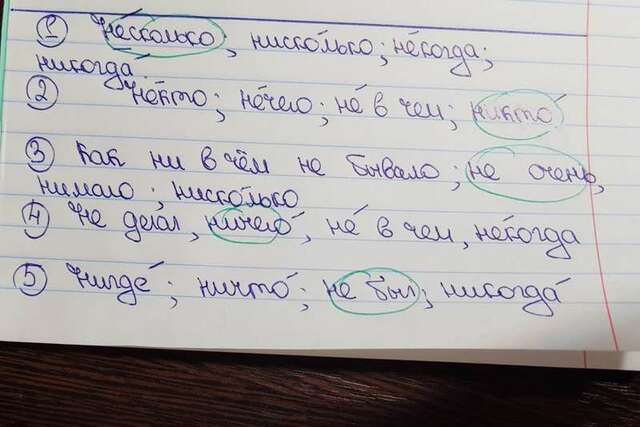 ① Не́сколько; ниско́лько; не́когда;
никогда́.
② Не́кто; не́чего; не́ в чем; никто́
③ Как ни в чём не бывало; не очень,
нимало; нисколько
④ Не делал, ничего́, не́ в чем, не́когда
⑤ Нигде́; ничто́; не был; никогда́